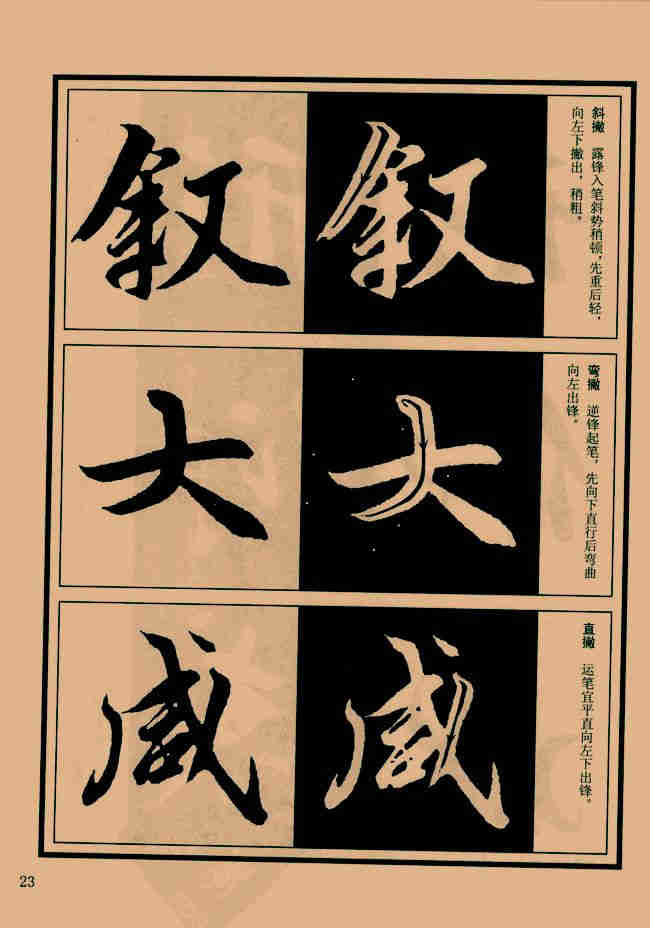 斜撇 露锋入笔斜势稍顿，先重后轻，
向左下撇出，稍粗。
叙 叙
弯撇 逆锋起笔，先向下直行后弯曲
向左出锋。
大 大
直撇 运笔宜平直向左下出锋。
咸 咸
23